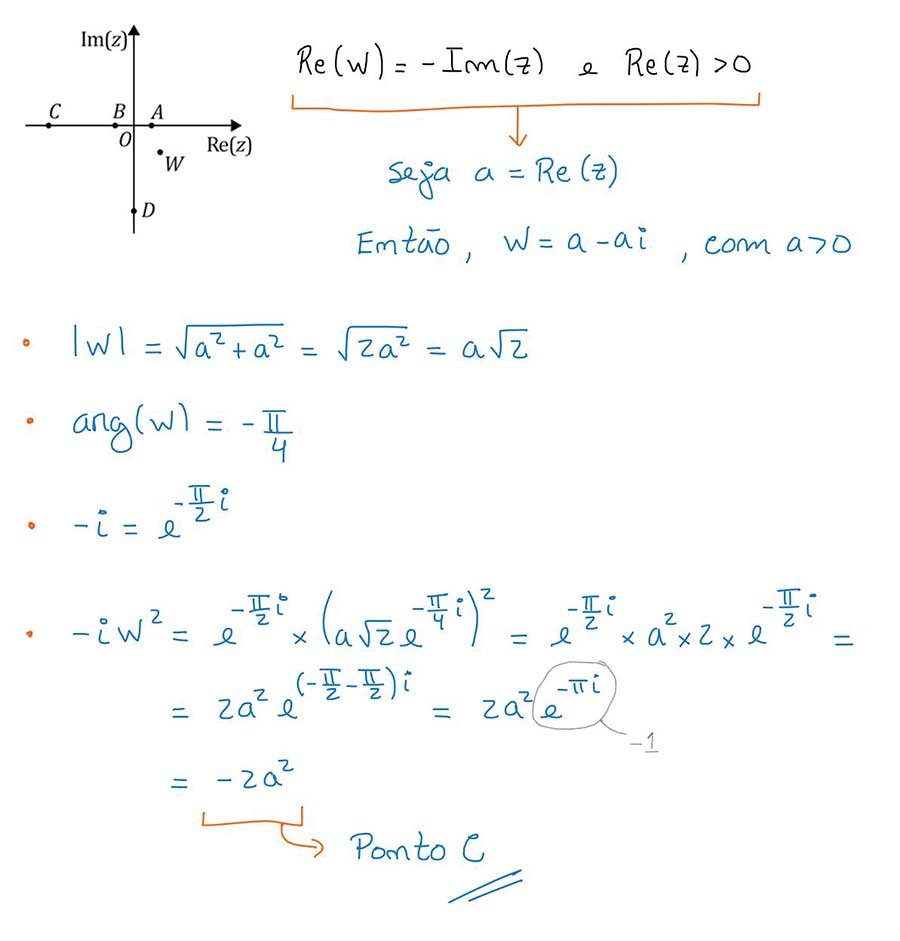 Im(z)
C B A
O Re(z)
W
D
Re(w) = -Im(z) e Re(z) > 0
Seja a = Re(z)
Então, w = a - ai, com a > 0
• |w| = √(a² + a²) = √(2a²) = a√2
• arg(w) = -π/4
• -i = e^(-π/2 i)
• -i w² = e^(-π/2 i) × (a√2 e^(-π/4 i))² = e^(-π/2 i) × a² × 2 × e^(-π/2 i) =
= 2a² e^((-π/2 - π/2)i) = 2a² e^(-πi)
-1
= -2a²
Ponto C